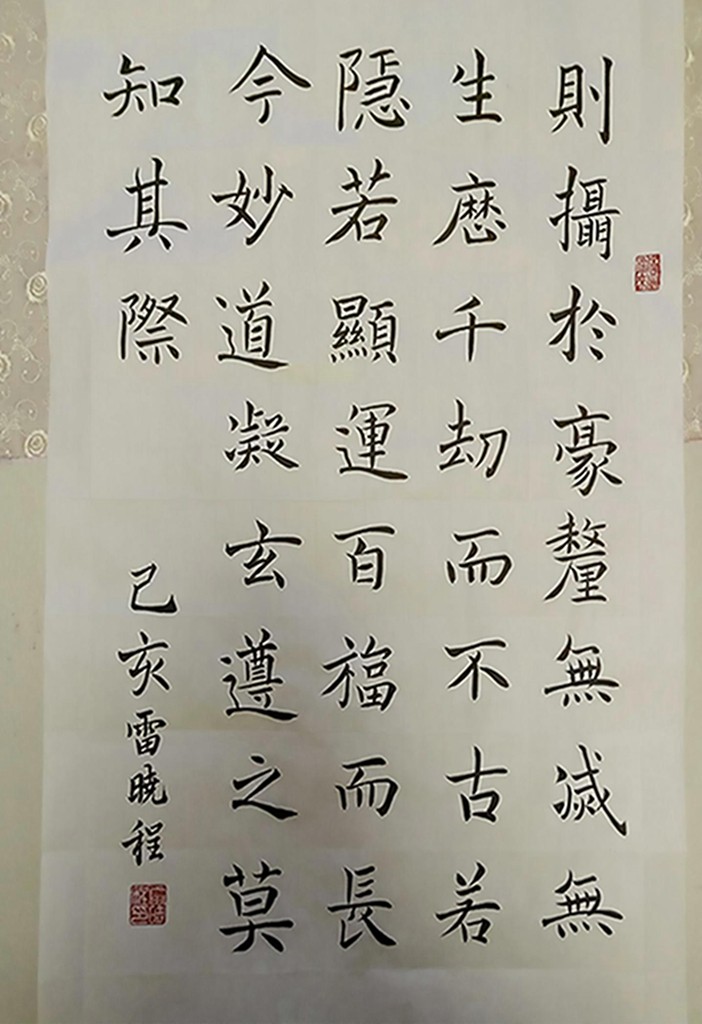 則攝於豪釐無滅無
生歷千劫而不古若
隱若顯運百福而長
今妙道凝玄遵之莫
知其際
己亥雷曉程